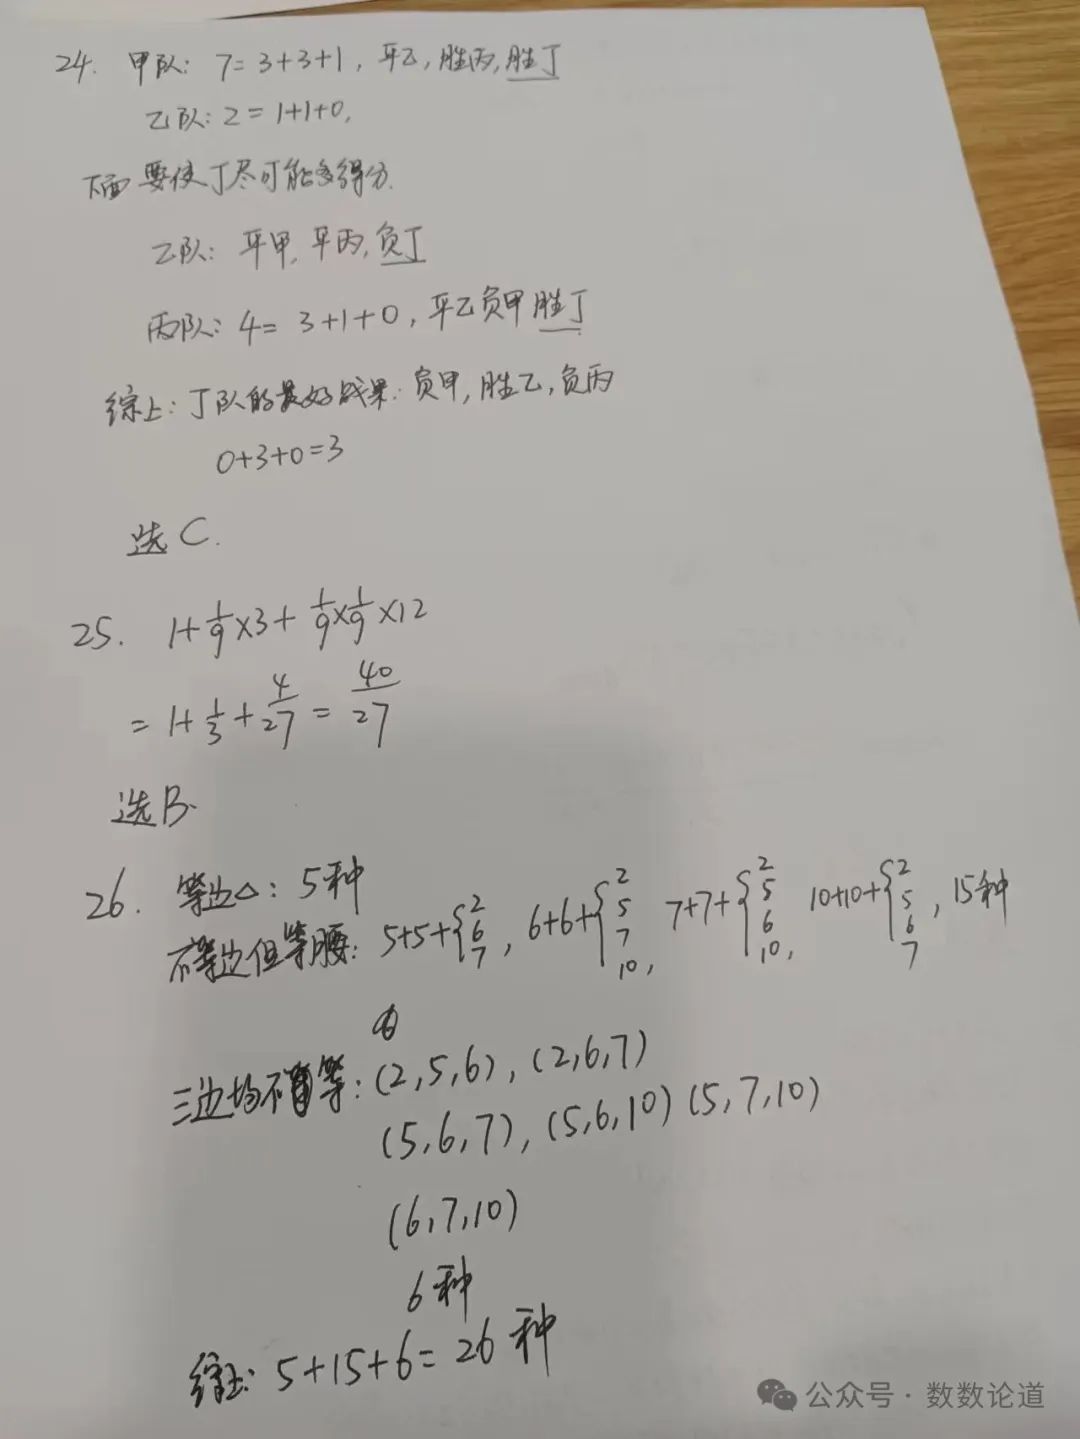 24. 甲队: 7=3+3+1, 平乙, 胜丙, 胜丁
乙队: 2=1+1+0,
下面要使丁尽可能多得分.
乙队: 平甲, 平丙, 负丁
丙队: 4=3+1+0, 平乙负甲胜丁
综上: 丁队的最好战果: 负甲, 胜乙, 负丙
0+3+0=3
选C.
25. 1+1/9×3+1/9×1/9×12
=1+1/3+4/27=40/27
选B.
26. 等边△: 5种
不等边但等腰: 5+5+{2 6 7, 6+6+{2 5 7 10, 7+7+{2 5 6 10, 10+10+{2 5 6 7, 15种
三边均不等: (2,5,6), (2,6,7)
(5,6,7), (5,6,10) (5,7,10)
(6,7,10)
6种
综上: 5+15+6=26种
公众号·数数论道